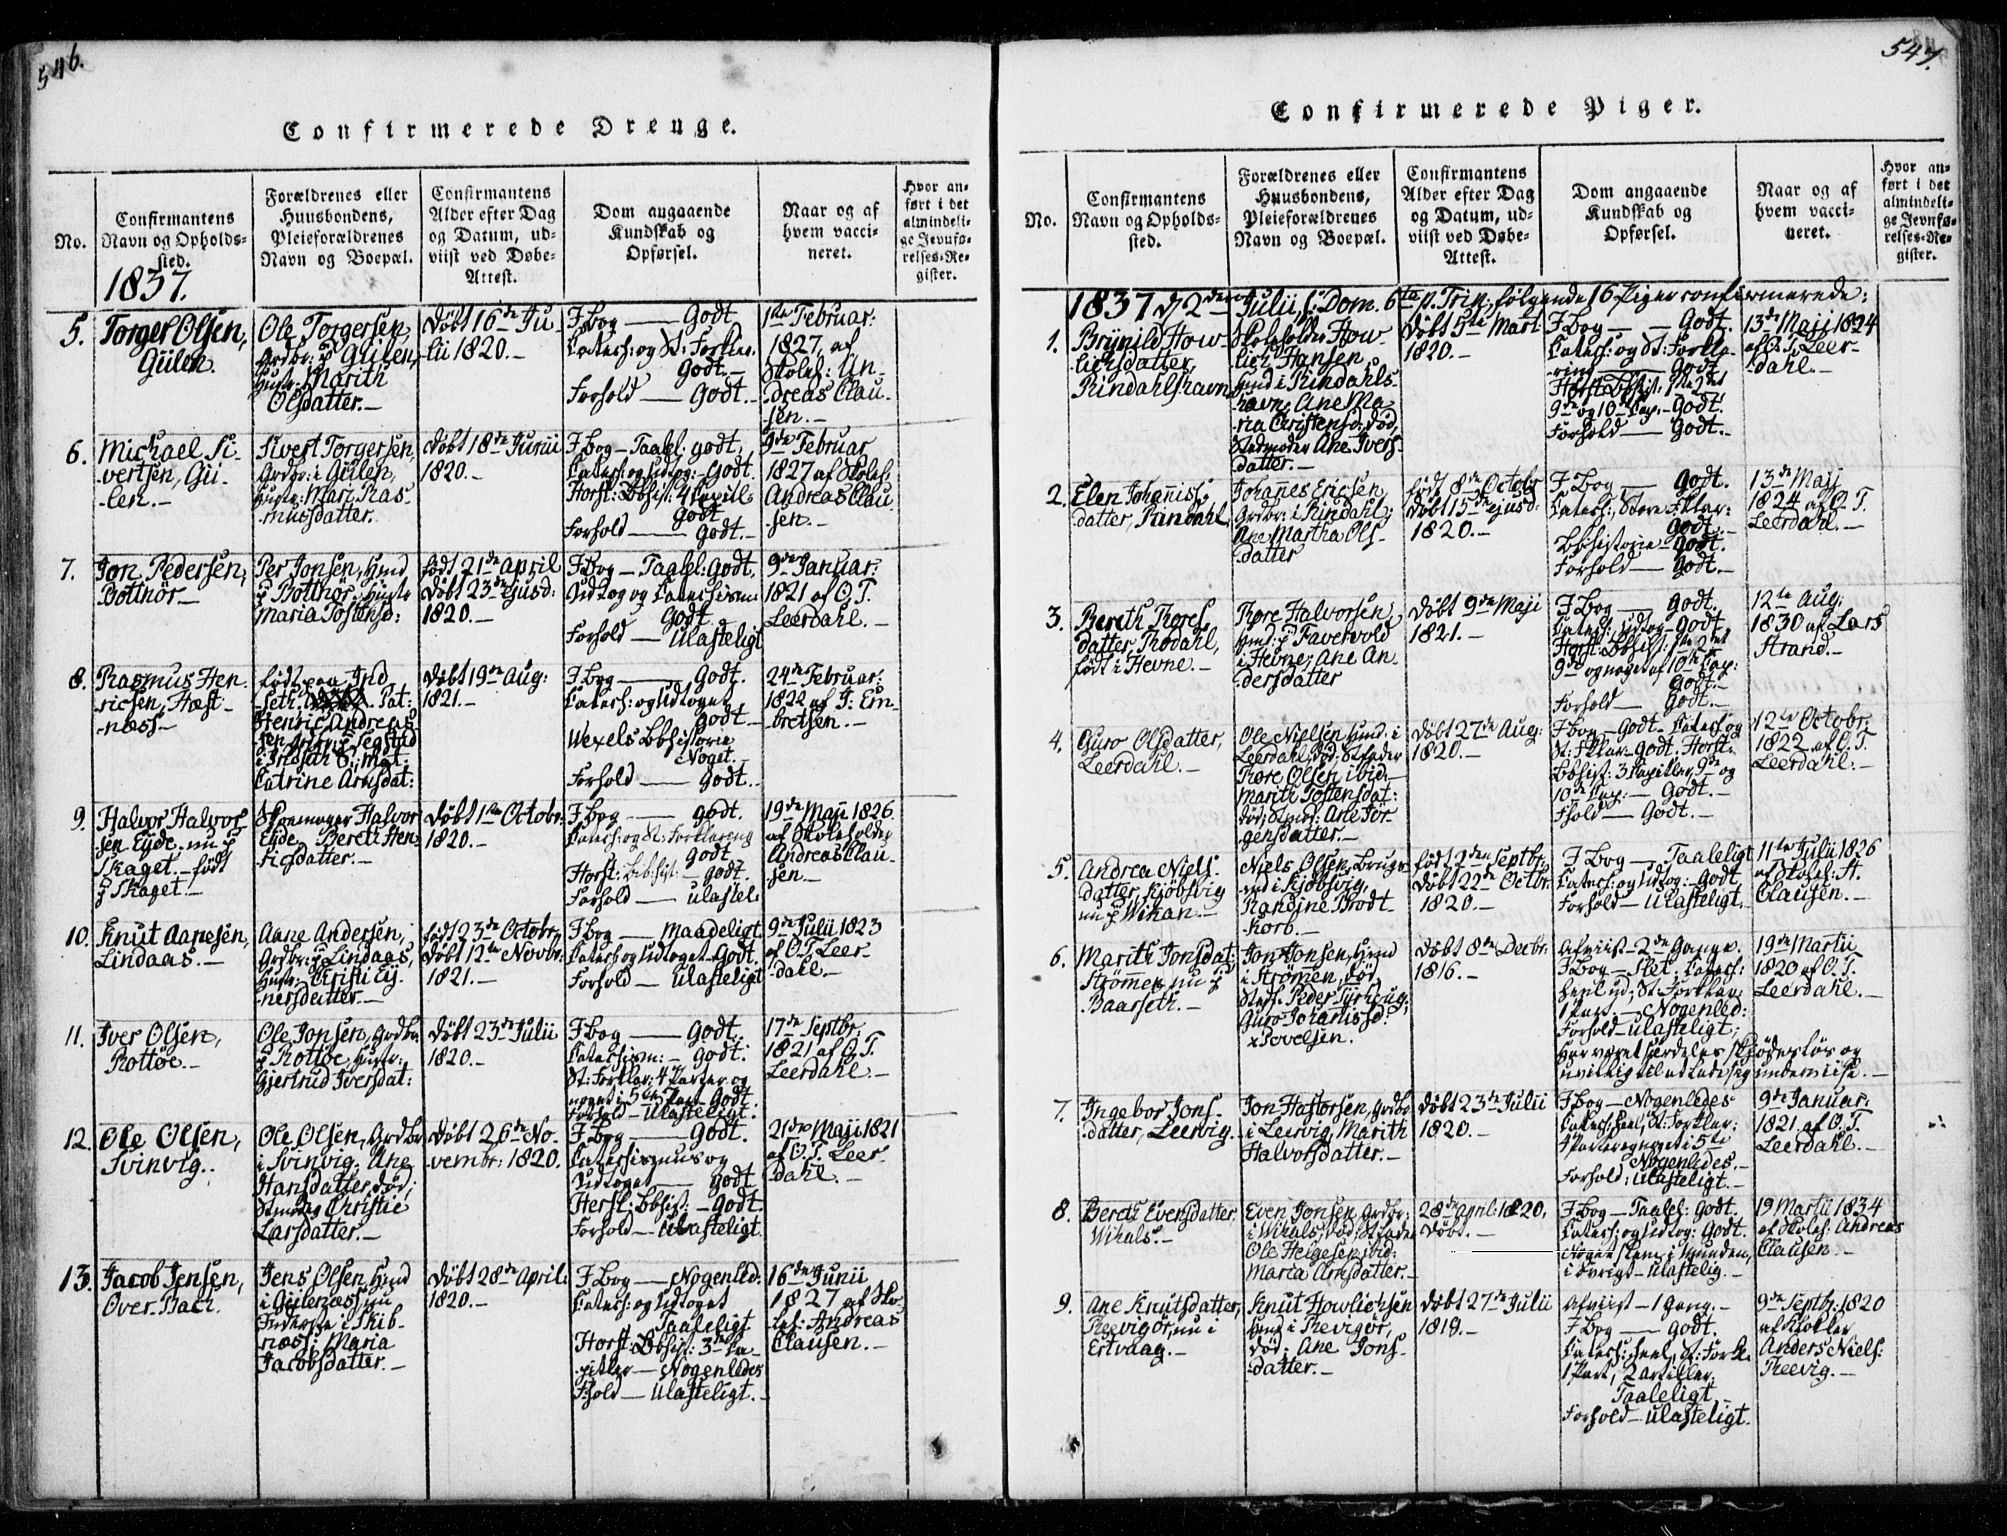 546.
Confirmerede Drenge.
No.
Confirmantens
Navn og Opholds-
sted.
Forældrenes eller
Huusbondens,
Pleieforældrenes
Navn og Boepæl.
Confirmantens
Alder efter Dag
og Datum, ud-
viist ved Døbe-
Attest.
Dom angaaende
Kundskab og
Opførsel.
Naar og af
hvem vacci-
neret.
Hvor an-
ført i det
almindeli-
ge Jevnfø-
relses-Re-
gister.
1837.
5.
Torger Olsen,
Gülen.
Ole Torgersen,
Grdbr: p Gülen,
Hustr: Marith
Olsdatter.-
Døbt 16de Ju-
lii 1820.-
I Bog — Godt
Catech: og St: Forklar:
Godt.-
Forhold — Godt.-
1ste Februar:
1827, af
Skoleh: An-
dreas Clau-
sen.-
6.
Michael Si-
vertsen, Gü-
len.-
Sivert Torgersen,
Grdbr: i Gülen,
Hustr: Mari Ras-
musdatter.
Døbt 18de Junii
1820.-
I Bog - Taalel: godt,
Catech: og Udtog: - Godt
Horst: Bbhist: 4 Capitl:
Godt
Forhold — Godt.-
9de Februar
1827 af Skoleh:
Andreas Clau-
sen.-
7.
Jon Pedersen,
Bottnör.-
Per Jonsen, Hmd
p Bottnör, Hustr
Maria Tostensd:
født 21de April
Døbt 23de ejusd:
1820.-
I Bog - Taalel: Godt,
Udtog og Catechism:
Godt
Forhold — Ulasteligt
9de Januar:
1821 af O. T.
Leerdahl.-
8.
Rasmus Hen-
ricsen, Hest-
næss.-
født paa Ind-
Seth: Pat:
Henric Andreas-
sen
i Indseth S.; Mat:
Catrine Arnsdat:
Døbt 19de Aug:
1821.-
I Bog — Godt.
Catech: og Udtoget
Godt —
Wexels Bbhistorie
Noget.-
Forhold — Godt.-
24de Februar:
1822 af J: Em-
bretsen.-
9.
Halvor Halvor-
sen Eyde, nu p
Skaget.- født
p Skaget.-
Skoemager Halvor
Eyde, Bereth Hen-
ricsdatter.-
Døbt 1ste Octobr:
1820.-
I Bog — godt.
Catech: og St: Forklareng
Godt
Horst: Bibhist: - godt.
Forhold - ulastel:
19de Maji 1826
af Skoleholder
Andreas Clau-
sen.-
10.
Knut Aanesen,
Lindaas.-
Aane Andersen,
Grdbr: p Lindaas,
Hustr: Christi Ej-
nersdatter.-
født 23de Octobr:
Døbt 12te Novbr:
1821.-
I Bog — Maadeligt
Catech: og Udtoget Godt.
Forhold — Ulasteligt
9de Julii 1823
af O. T. Leer-
dahl.-
11.
Iver Olsen,
Rottöe.-
Ole Jonsen, Grdbr:
p Rottöe, Hustr:
Gjertrud Iversdat:
Døbt 23de Julii
1820.-
I Bog — Godt.
Catechism: - Godt.
St: Forklar: 4 Parter og
noget i 5te Part - Godt.
Forhold - Ulasteligt:
17de Septbr:
1821 af O. T.
Leerdahl.-
12.
Ole Olsen,
Svinvig.
Ole Olsen, Grdbr:
i Svinvig, Ane
Hansdatter, død;
Stmoder Christie
Larsdatter.-
Døbt 26de No-
vembr: 1820.
I Bog — Godt.
Catechismus og
Udtoget — Godt
Horst: Bbhist: - Godt.
Forhold - Ulasteligt.
21de Maji 1821
af O. T. Leer-
dahl.-
13.
Jacob Jensen,
Over-Bach.
Jens Olsen, Hmd
i Gülernæss, nu
Inderste i Skib-
næss; Maria
Jacobsdatter.-
Døbt 28de April:
1820.-
I Bog — Nogenled:
Catech: og Udtoget
Taaleligt
Horst: Bbhist: 3de Ca-
pitler - Nogenledes
Fhold — Ulasteligt.-
16de Junii
1827 af Sko-
leh: Andreas
Clausen.-
547.
Confirmerede Piger.
No.
Confirmantens
Navn og Opholds-
sted.
Forældrenes eller
Huusbondens,
Pleieforældrenes
Navn og Boepæl.
Confirmantens
Alder efter Dag
og Datum, ud-
viist ved Døbe-
Attest.
Dom angaaende
Kundskab og
Opførsel.
Naar og af
hvem vacci-
neret.
Hvor an-
ført i det
almindeli-
ge Jevnfø-
relses-Re-
gister.
1837 d 2den Julii, Dom. 6ta p. Trin: følgende 16 Piger confirmerede:
1.
Brÿnild How-
lichsdatter,
Rindahlshavn
Skoleholder How-
lich Hansen
Hmd i Rindahls-
havn, Ane Ma-
ria Christensd: død,
Stedmoder Ane Ivers-
datter.-
Døbt 5te Mart
1820.-
I Bog — Godt.
Catech: og St: Forkla-
ring — Godt
Horst: Bbhist: 1ste 2det
9de og 10de Cap. - Godt.
Forhold — Godt.-
13de Maji 1824
af O. T. Leer-
dahl.-
2.
Elen Johannis-
datter, Rindahl,
Johannes Ericsen,
Grdbr: i Rindahl;
Martha Ols-
datter
født 8de Octobr
Døbt 15de ejusd:
1820.-
I Bog — Godt.
Catech:, Store Fklar:
Godt.-
Bbhistorie - Godt.
Forhold — Godt.-
13de Maji
1824 af O. T.
Leerdahl.-
3.
Bereth Thores-
datter, Rodahl,
født i Hevne.-
Thore Halvorsen,
Hmd: p Tavervold
i Hevne; Ane An-
dersdatter
Døbt 9de Maji
1821.-
I Bog — Godt.
Catech: Udtog - Godt.
Horst: Bbhist: 1ste 2det
9de og noget af 10de Cap:
Godt.-
Forhold — Godt.-
12te Aug:
1830 af Lars
Strand.-
4.
Guro Olsdatter,
Leerdahl.-
Ole Nielsen Hmd: i
Leerdahl, død; Stfader
Thore Olsen ibid.-
Marith Tostensdat:
død; Stmod: Ane Jör-
gensdatter.-
Døbt 27de Aug:
1820.-
I Bog - Godt - Catech: og
St: Fklar - Godt. Horst:
Bbhist: 3 Capitler, 9de og
10de Cap: - Godt.-
Fhold — Godt.-
12te Octobr:
1822 af O. T.
Leerdahl.-
5.
Andrea Niels-
datter, Kjöbsvig
nu p Wihan.-
Niels Olsen, Bruge-
nd i Kjöbsvig,
Randine Brodt-
korb.-
født 2den Septbr:
Døbt 22de Octbr:
1820.-
I Bog — Taaleligt
Catech: og Udtog: - Godt
Forhold - Ulasteligt.
11te Julii 1826
af Skoleh: A.
Clausen.-
6.
Marith Jonsdat:
Strömmen, nu p
Baarseth.-
Jon Jonsen, Hmd
i Strömen, død,
Stedf: Peder
Guro Johanisd:
x Povelsen.
Døbt 8de Decbr:
1816.-
Afviist - 2de Gange.
I Bog - Slet. Catech:
heel ud; St: Forklar:
1 Part. - Nogenled:
Forhold - ulasteligt;
har været særdeles skjödeslös og
uvillig til at lade sig underviise.-
19de Martii
1820 af O. T.
Leerdahl.-
7.
Ingebor Jons-
datter, Leervig.
Jon Hastorsen, Grdbr:
i Leervig, Marith
Halvorsdatter.-
Døbt 23de Julii
1820.-
I Bog - Nogenledes
Catech: heel, St: Forklar:
4 Parter og noget i 5te
Nogenledes.-
Forhold: Ulasteligt.-
9de Januar:
1821 af O. T.
Leerdahl.-
8.
Bereth Evensdatter,
Wihals.-
Even Jonsen, Grdbr:
i Wihals, død; Stfader
Ole Helgesen, ibid:
Maria Arnsdatter.-
28de April: 1820,
Døbt.-
I Bog - Taalel: Godt.
Catech: og Udtog: Godt.
Noget slem i Munden,
i övrigt - ulastelig.-
19 Martii 1834
af Skoleh: Andreas
Clausen.-
9.
Ane Knutsdatter,
Reevigör, nu i
Ertvaag.-
Knut Howlichsen
Hmd i Revigör,
død; Ane Jons-
datter.-
Døbt 27de Julii
1819.-
Afviist - 1 Gang.-
I Bog — Godt.
Catech: heel, St: Fork:
1 Part, 2 Artiller,
Taaleligt
Forhold - ulasteligt.
9de Septbr: 1820
af Klokker
Anders Niels:
Reevig.-